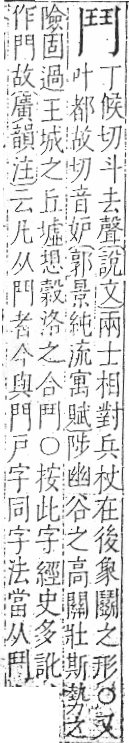 鬥丁候切斗去聲說文兩士相對兵杖在後象鬭之形○又
叶都故切音妒郭景純流寓賦陟幽谷之高關壯斯勢之
險固過王城之丘墟想穀洛之合鬥○按此字經史多訛
作門故廣韻注云凡从鬥者今與門戶字同字法當从鬥